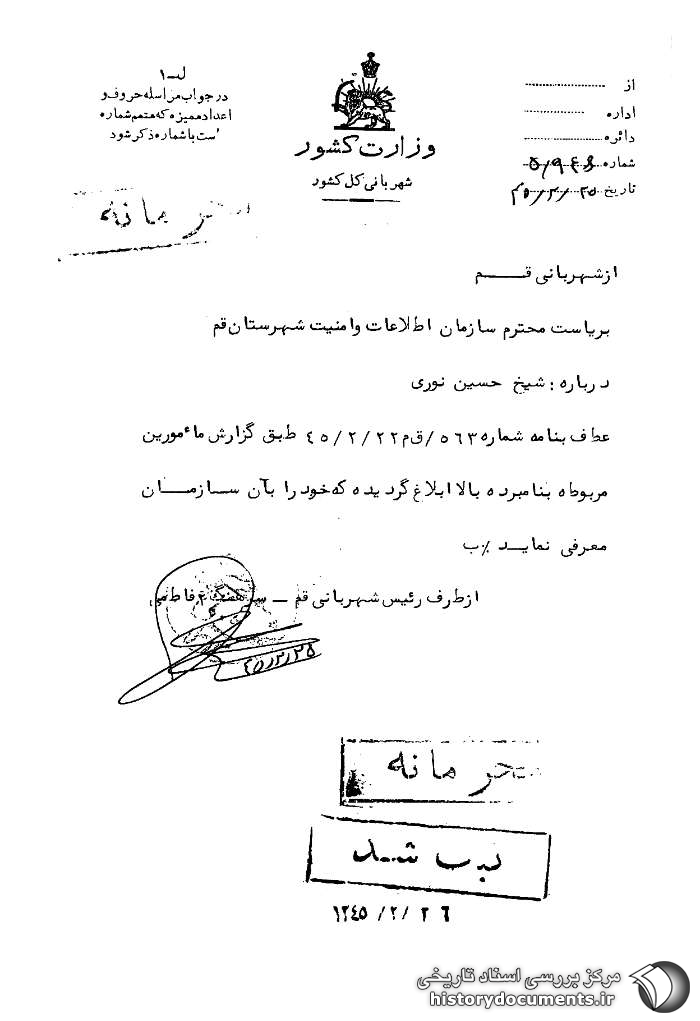 ل-۱
در جواب مراسله حروف و
اعداد ممیزه که متمم شماره
است با شماره ذکر شود
وزارت کشور
شهربانی کل کشور
از
اداره
دائره
شماره
تاریخ ۴۵/۲/۲۵
محرمانه
از شهربانی قم
بریاست محترم سازمان اطلاعات و امنیت شهرستان قم
درباره : شیخ حسین نوری
عطف بنامه شماره ۵۶۳/ق م ۴۵/۲/۲۲ طبق گزارش مأمورین
مربوطه بنامبرده بالا ابلاغ گردیده که خود را بآن سازمان
معرفی نماید ٪ب
از طرف رئیس شهربانی قم – سرهنگ ۲ فاطمی
۴۵/۲/۲۵
محرمانه
ثبت شد
۱۳۴۵/۲/۲۶
مرکز بررسی اسناد تاریخی
historydocuments.ir